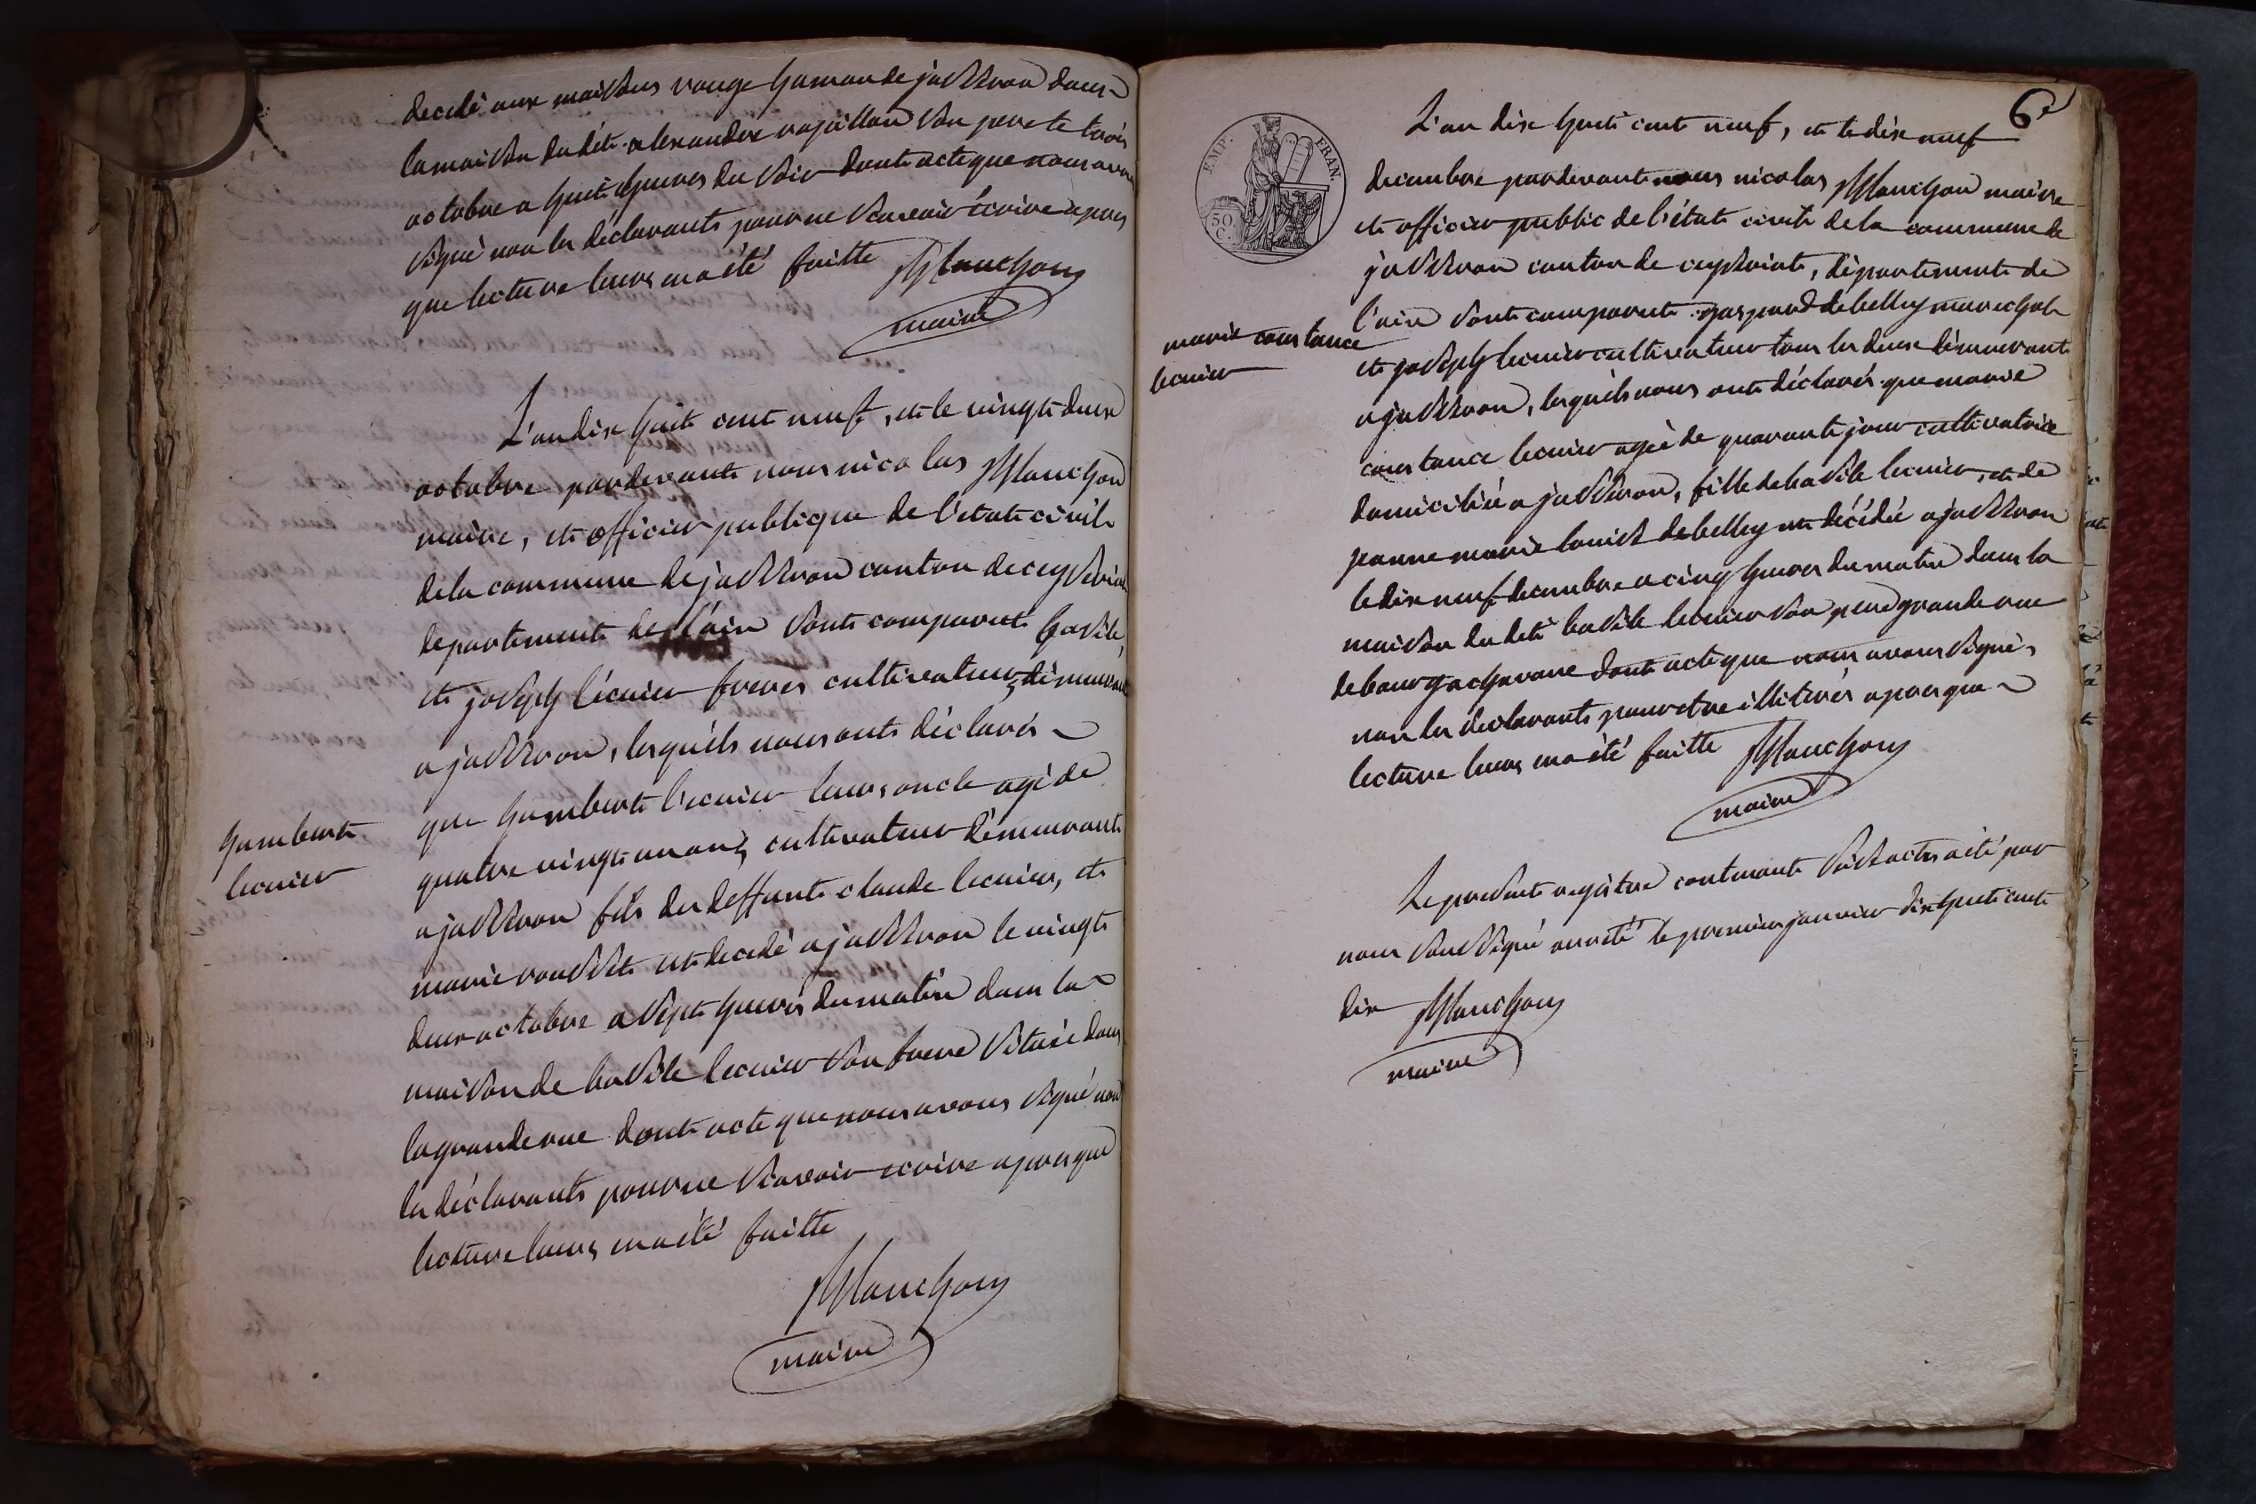 decedé aux maisons rouge hamau de jasseron dans
la maison du dit alexandre rapillon son pere le trois
octobre a huit heures du soir dont acte que nous avons
signé non les déclarants pour ne scavoir écrire apres
que lecture leurs en a été faitte Planchon
maire
L'an dix huit cent neuf, et le vingt deux
octobre pardevant nous nicolas Planchon
maire, et officier publique de l'etat civil
de la commune de jasseron canton de ceyseriat
departement de l'ain sont comparut basile,
et joseph lécuier freres cultivateurs démeurant
a jasseron, lesquéls nous ont déclarés
que humbert lécuier leurs oncle agé de
quatre vingt un ans, cultivateur démeurant
a jasseron fils du deffunt claude lecuier, et
marie rousset est decedé a jasseron le vingt
deux octobre a sept heures du matin dans la
maison de basile lecuier son frere située dans
la grande rue dont acte que nous avons signé non
les déclarants pour ne scavoir ecrire apres que
lecture leurs en a été faitte
Planchon
maire
humbert
lecuier
6e
EMP. FRAN.
50
C.
L'an dix huit cent neuf, et le dix neuf
decembre pardevant nous nicolas Planchon maire
et officier public de l'état civil de la commune de
jasseron canton de ceyseriat, département de
l'ain sont comparut gaspard debelley marechal
et joseph lecuier cultivateur tous les deux démeurant
a jasseron, lesquéls nous ont déclarés que marie
constance lecuier agée de quarante jour cultivatrice
domiciliée a jasseron, fille de basile lecuier, et de
jeanne marie louise debelley est décédée a jasseron
le dix neuf decembre a cinq heures du matin dans la
maison du dit basile lecuier son pere grande rue
de bourgachavane dont acte que nous avons signé,
non les déclarants pour etre illitérés apres que
lecture leurs en a été faitte Planchon
maire
marie constance
lecuier
Le present regitre contenant seize actes a été par
nous soussigné arreté le premier janvier dix huit cent
dix Planchon
maire